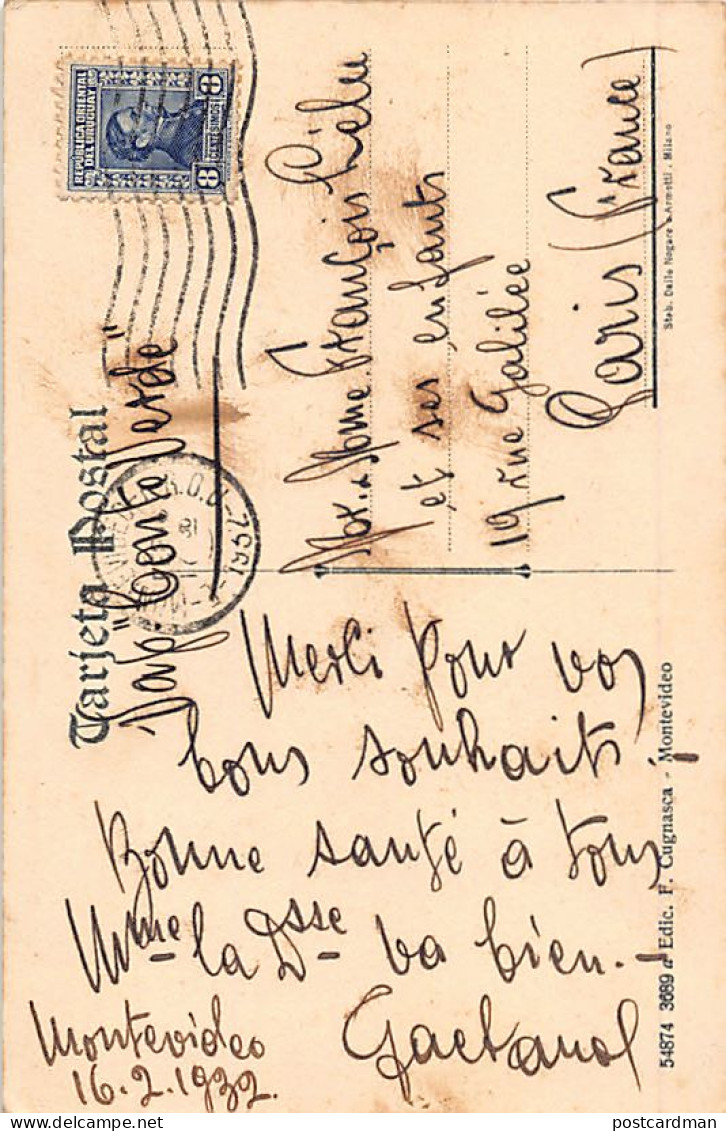 REPÚBLICA ORIENTAL
DEL URUGUAY
8 CENTESIMOS 8
Tarjeta Postal
Vap "Conte Verde"
Mor. & Mme François
et ses enfants
19 rue Galilée
Paris (France)
Stab. Dalle Nogare e Armetti . Milano
Merci pour vos
bons souhaits!
Bonne santé à tous
Mme la Dsse va bien.-
Gaetanol
Montevideo
16.2.1932.
54874 3689 a Edic. F. Cugnasca - Montevideo
postcardman